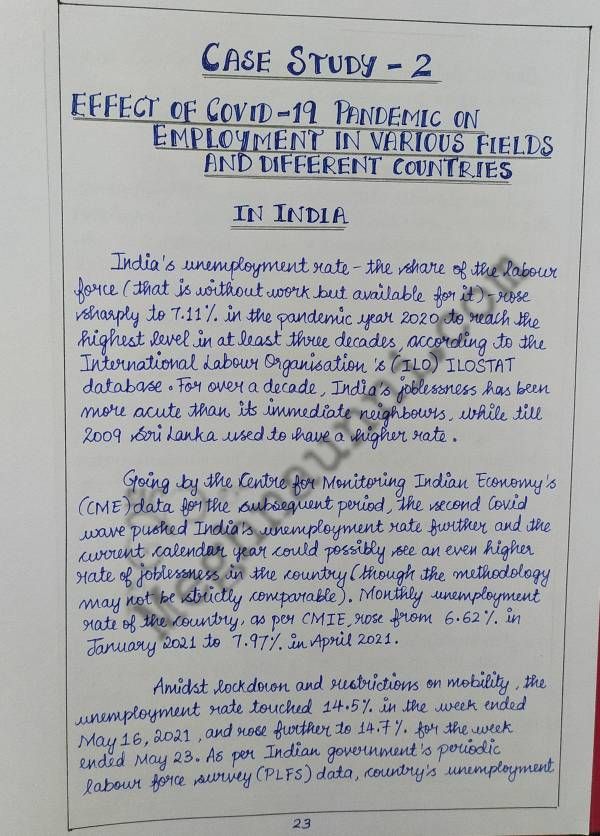 CASE STUDY - 2
EFFECT OF COVID-19 PANDEMIC ON
EMPLOYMENT IN VARIOUS FIELDS
AND DIFFERENT COUNTRIES
IN INDIA
India's unemployment rate - the share of the labour
force (that is without work but available for it) - rose
sharply to 7.11% in the pandemic year 2020 to reach the
highest level in at least three decades, according to the
International Labour Organisation's (ILO) ILOSTAT
database. For over a decade, India's joblessness has been
more acute than its immediate neighbours, while till
2009 Sri Lanka used to have a higher rate.
Going by the Centre for Monitoring Indian Economy's
(CME) data for the subsequent period, the second Covid
wave pushed India's unemployment rate further and the
current calendar year could possibly see an even higher
rate of joblessness in the country (though the methodology
may not be strictly comparable). Monthly unemployment
rate of the country, as per CMIE, rose from 6.62% in
January 2021 to 7.97% in April 2021.
Amidst lockdown and restrictions on mobility, the
unemployment rate touched 14.5% in the week ended
May 16, 2021, and rose further to 14.7% for the week
ended May 23. As per Indian government's periodic
labour force survey (PLFS) data, country's unemployment
23